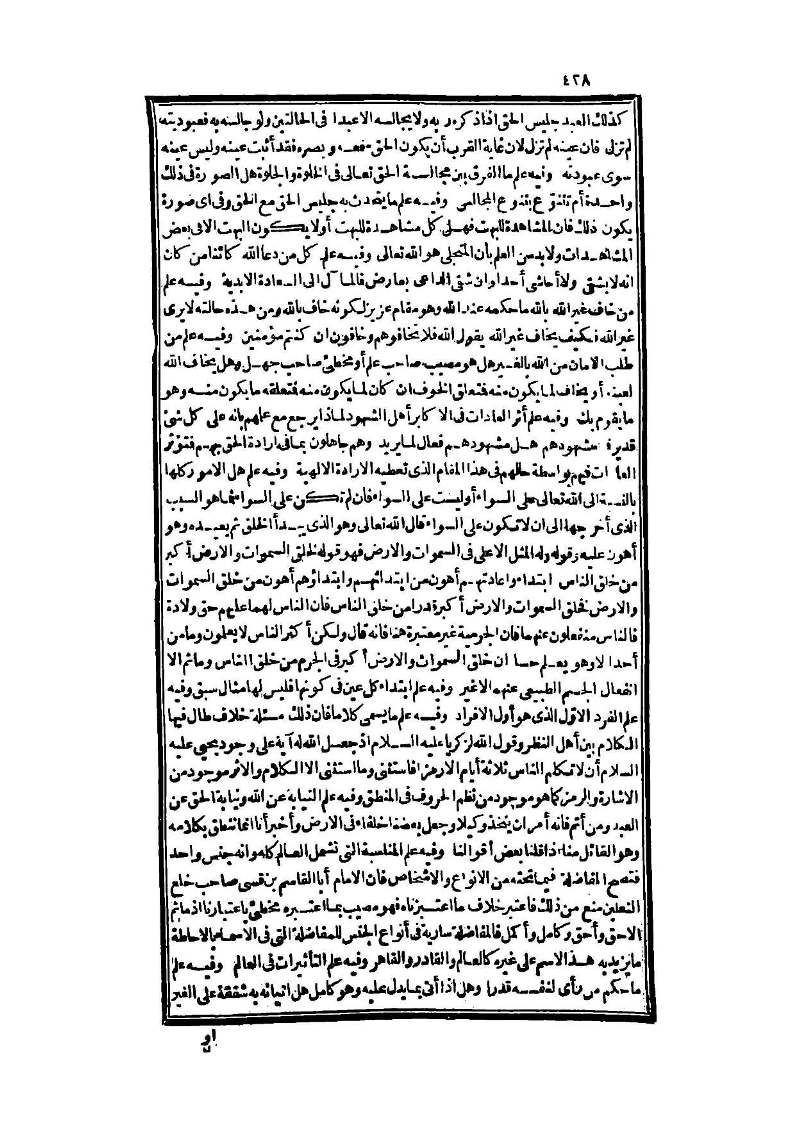 ٤٢٨
كذلك العبد جليس الحق اذا ذكره ربه ولا يجالسه الا عبدا في الحالتين ولو جالسه به فعبوديته
لم تزل فان عينه لم تزل لان غاية القرب أن يكون الحق سمعه وبصره فقد أثبت عينه وليس عينه
سوى عبودته وفيه علم ما الفرق بين مجالسة الحق تعالى في الخلوة والجلوة هل الصورة في ذلك
واحدة أم تتنوع بتنوع المجالس وفيه علم ما يتحدث به جليس الحق مع الحق وفي أي صورة
يكون ذلك فان المشاهدة للبهت فهل كل مشاهدة للبهت أولا يكون البهت الا في بعض
المشاهدات ولا بد من العلم بأن المتجلي هو الله تعالى وفيه علم كل من دعا الله كائنا من كان
انه لا يشقى ولا أحاشي أحدا وان شقي الداعي بعارض فالمآل الى السعادة الابدية وفيه علم
من خاف غير الله بالله ما حكمه عند الله وهو مقام عزيز لكونه خاف بالله ومن هذه حالته لا يرى
غير الله فكيف يخاف غير الله يقول الله فلا تخافوهم وخافون ان كنتم مؤمنين وفيه علم من
طلب الامان من الله بالغير هل هو مصيب صاحب علم أو مخطئ صاحب جهل وهل يخاف الله
لعينه أو يخاف لما يكون منه فتعلق الخوف ان كان لما يكون منه فتعلقه ما يكون منه وهو
ما يقوم بك وفيه علم أثر العادات في الاكابر أهل الشهود لماذا يرجع مع علمهم بانه على كل شئ
قدير مشهودهم هل مشهودهم فعال لما يريد وهم جاهلون بما في ارادة الحق بهم فتؤثر
العادات فيهم بواسطة حالهم في هذا المقام الذي تعطيه الارادة الالهية وفيه علم هل الامور كلها
بالنسبة الى الله تعالى على السواء أو ليست على السواء فان لم تكن على السواء فما هو السبب
الذي أخرجها الى ان لا تكون على السواء قال الله تعالى وهو الذي يبدأ الخلق ثم يعيده وهو
أهون عليه وقوله وله المثل الاعلى في السموات والارض فهو قوله لخلق السموات والارض أكبر
من خلق الناس ابتداء واعادتهم أهون من ابتدائهم وابتداؤهم أهون من خلق السموات
والارض فخلق السموات والارض أكبر قدرا من خلق الناس فان الناس لهما عليهم حق ولادة
فالناس منفعلون عنهما فان الجرمية غير معتبرة هنا فانه قال ولكن أكثر الناس لا يعلمون وما من
أحد الا وهو يعلم حسا ان خلق السموات والارض أكبر في الجرم من خلق الناس وما ثم الا
انفعال الجسم الطبيعي عنهما لا غير وفيه علم ابتداء كل عين في كونها فليس لها مثال سبق وفيه
علم الفرد الاول الذي هو أول الافراد وفيه علم ما يسمى كلاما فان ذلك مسئلة خلاف طال فيها
الكلام بين أهل النظر وقول الله لزكريا عليه السلام اذ جعل الله له آية على وجود يحيى عليه
السلام أن لا تكلم الناس ثلاثة أيام الا رمزا فاستثنى وما استثنى الا الكلام والاثر موجود من
الاشارة والرمز كما هو موجود من نظم الحروف في المنطق وفيه علم النيابة عن الله ونيابة الحق عن
العبد ومن أتم فانه أمر ان يتخذ وكيلا وجعل بعضنا خلفاء في الارض وأخبر أنا انما ننطق بكلامه
وهو القائل منا اذا قلنا بعض أقوالنا وفيه علم المناسبة التي تشمل العالم كله وانه جنس واحد
فتصح المفاضلة فيما تحته من الانواع والاشخاص فان الامام أبا القاسم بن قسي صاحب خلع
النعلين منع من ذلك فاعتبر خلاف ما اعتبرناه فهو مصيب بما اعتبره مخطئ باعتبارنا اذ ما ثم
الا حق وأحق وكامل وأكمل فالمفاضلة سارية في أنواع الجنس للمفاضلة التي في الأسماء بالاحاطة
ما يزيد به هذا الاسم على غيره كالعالم والقادر والقاهر وفيه علم التأثيرات في العالم وفيه علم
ما حكم من رأى لنفسه قدرا وهل اذا أتى بما يدل عليه وهو كامل هل اتيانه به شفقة على الغير
او